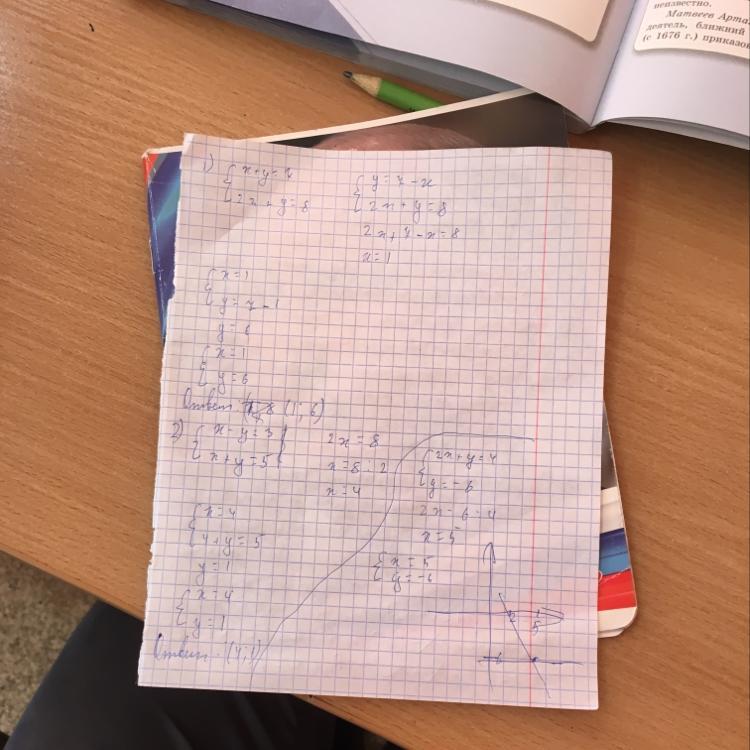 неизвестно.
Матвеев Арта
деятель, ближний
(с 1676 г.) приказо
1) { x+y=7
{ 2x+y=8
{ y=7-x
{ 2x+y=8
2x+7-x=8
x=1
{ x=1
{ y=7-1
y=6
{ x=1
{ y=6
Ответ: (1; 6)
2) { x-y=3
{ x+y=5
2x=8
x=8:2
x=4
{ x=4
{ 4+y=5
y=1
{ x=4
{ y=1
Ответ: (4;1)
{ 2x+y=4
{ y=-6
2x-6=4
x=5
{ x=5
{ y=-6
2
5
-6